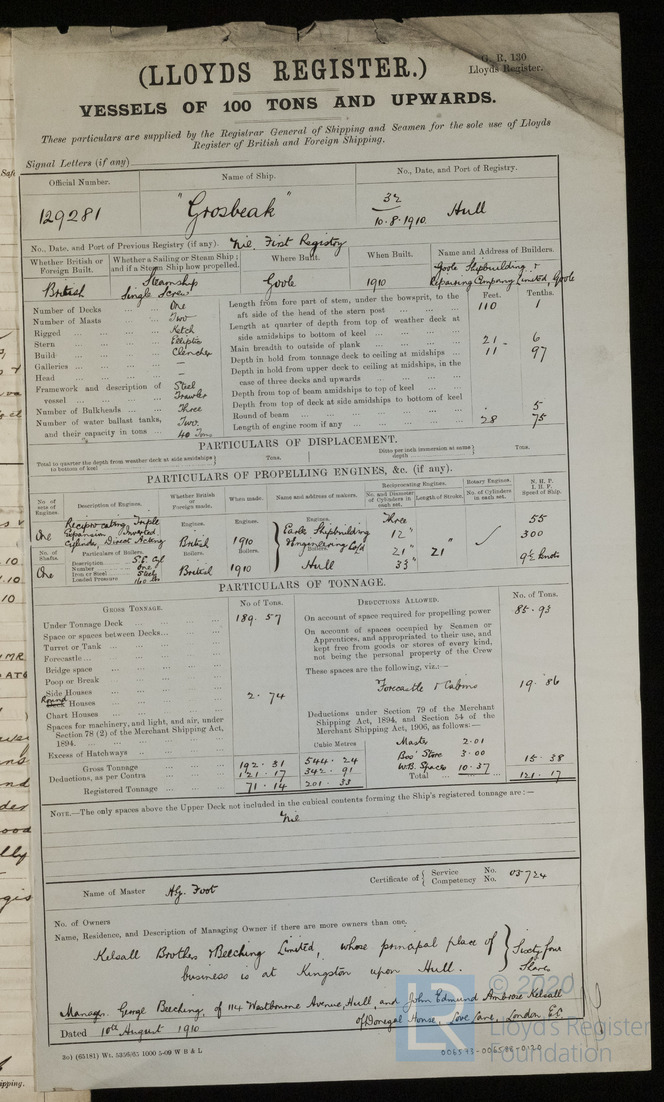 (LLOYDS REGISTER.)
G. R. 130
Lloyds Register.
VESSELS OF 100 TONS AND UPWARDS.
These particulars are supplied by the Registrar General of Shipping and Seamen for the sole use of Lloyds
Register of British and Foreign Shipping.
Signal Letters (if any)
Official Number. Name of Ship. No., Date, and Port of Registry.
129281 "Grosbeak" 32 10.8.1910 Hull
No., Date, and Port of Previous Registry (if any). Nil First Registry
Whether British or Foreign Built. Whether a Sailing or Steam Ship; and if a Steam Ship how propelled. Where Built. When Built. Name and Address of Builders.
British Steamship Single Screw Goole 1910 Goole Shipbuilding & Repairing Company Limited, Goole
Feet. Tenths.
Number of Decks One
Number of Masts Two
Rigged Ketch
Stern Elliptic
Build Clencher
Galleries –
Head –
Framework and description of vessel Steel Trawler
Number of Bulkheads Three
Number of water ballast tanks, and their capacity in tons Two 40 Tons
Length from fore part of stem, under the bowsprit, to the aft side of the head of the stern post 110 1
Length at quarter of depth from top of weather deck at side amidships to bottom of keel
Main breadth to outside of plank 21 6
Depth in hold from tonnage deck to ceiling at midships 11 97
Depth in hold from upper deck to ceiling at midships, in the case of three decks and upwards
Depth from top of beam amidships to top of keel
Depth from top of deck at side amidships to bottom of keel
Round of beam . 5
Length of engine room if any 28 75
PARTICULARS OF DISPLACEMENT.
Total to quarter the depth from weather deck at side amidships to bottom of keel Tons. Ditto per inch immersion at same depth Tons.
PARTICULARS OF PROPELLING ENGINES, &c. (if any).
No. of sets of Engines. Description of Engines. Whether British or Foreign made. When made. Name and address of makers. Reciprocating Engines. No. and Diameter of Cylinders in each set. Length of Stroke. Rotary Engines. No. of Cylinders in each set. N. H. P. I. H. P. Speed of Ship.
One Reciprocating Triple Expansion Inverted Cylinder, Direct Acting
Engines. British
Engines. 1910
Engines. Earles Shipbuilding & Engineering Co Ld Hull
Three 12" 21" 33" 21"
55
300
9½ knots
No. of Shafts. Particulars of Boilers. Boilers. Boilers. Boilers.
One Description S.E. Cyl
Number One
Iron or Steel Steel
Loaded Pressure 160 lbs
British 1910
PARTICULARS OF TONNAGE.
GROSS TONNAGE. No of Tons. DEDUCTIONS ALLOWED. No. of Tons.
Under Tonnage Deck 189.57
Space or spaces between Decks
Turret or Tank
Forecastle
Bridge space
Poop or Break
Side Houses
Round Houses 2.74
Chart Houses
Spaces for machinery, and light, and air, under Section 78 (2) of the Merchant Shipping Act, 1894.
Excess of Hatchways
Cubic Metres
Gross Tonnage 192.31 544.24
Deductions, as per Contra 121.17 342.91
Registered Tonnage 71.14 201.33
On account of space required for propelling power 85.93
On account of spaces occupied by Seamen or Apprentices, and appropriated to their use, and kept free from goods or stores of every kind, not being the personal property of the Crew
These spaces are the following, viz.:—
Forecastle & Cabins 19.86
Deductions under Section 79 of the Merchant Shipping Act, 1894, and Section 54 of the Merchant Shipping Act, 1906, as follows:—
Master 2.01
Bos' Store 3.00
W.B. Spaces 10.37 15.38
Total 121.17
NOTE.—The only spaces above the Upper Deck not included in the cubical contents forming the Ship's registered tonnage are:—
Nil
Name of Master Foot
Certificate of Service No. Competency No. 05724
No. of Owners
Name, Residence, and Description of Managing Owner if there are more owners than one.
Kelsall Brothers & Beeching Limited, whose principal place of
business is at Kingston upon Hull. Sixty four Shares
Manager. George Beeching, of 114 Westbourne Avenue, Hull, and John Edmund Ambrose Kelsall
of Donegal House, Love Lane, London E.C.
Dated 10th August 1910
(65181) Wt. 5356/65 1000 5-09 W B & L
006593-006598-0120
LR
© 2020
Lloyd's Register
Foundation